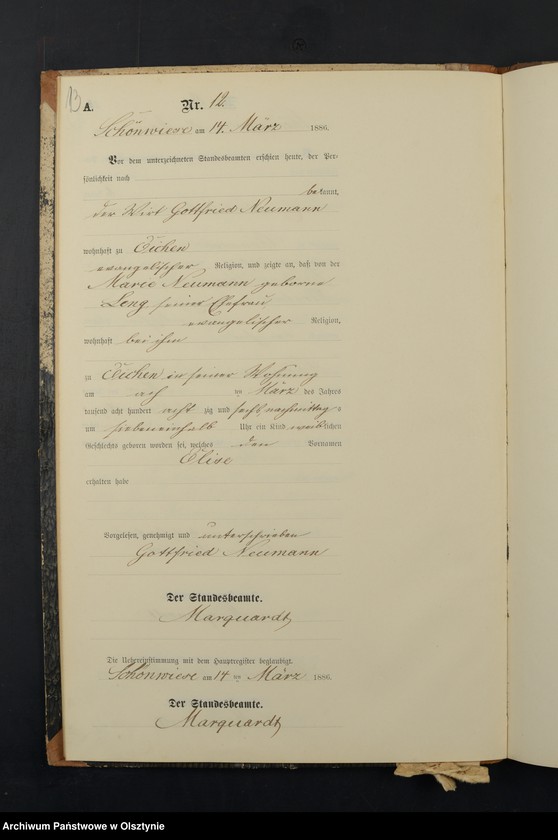 13
A.
Nr. 12.
Schönwiese am 14. März 1886.
Vor dem unterzeichneten Standesbeamten erschien heute, der Per-
sönlichkeit nach
bekannt,
der Wirt Gottfried Neumann
wohnhaft zu Eichen
evangelischer Religion, und zeigte an, daß von der
Marie Neumann geborne
seiner Ehefrau
evangelischer Religion,
wohnhaft bei ihm
zu Eichen in seiner Wohnung
am ten März des Jahres
tausend acht hundert acht zig und sechs nachmittags
um siebeneinhalb Uhr ein Kind weiblichen
Geschlechts geboren worden sei, welches den Vornamen
Elise
erhalten habe
Vorgelesen, genehmigt und unterschrieben
Gottfried Neumann
Der Standesbeamte.
Marquardt
Die Uebereinstimmung mit dem Hauptregister beglaubigt.
Schönwiese am 14 ten März 1886.
Der Standesbeamte.
Marquardt
Archiwum Państwowe w Olsztynie